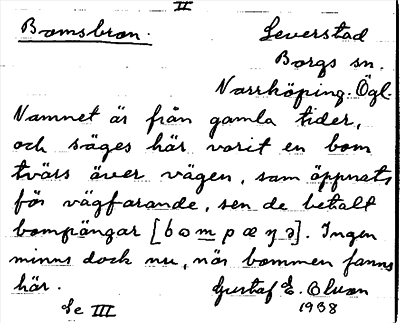 II
Bomsbron. Leverstad
Borgs sn.
Norrköping. Ögl.
Namnet är från gamla tider,
och säges här varit en bom
tvärs över vägen, som öppnats
för vägfarande, sen de betalt
bompängar [bompæŋə]. Ingen
minns dock nu, när bommen fanns
här. Gustaf E. Olson
Se III 1938